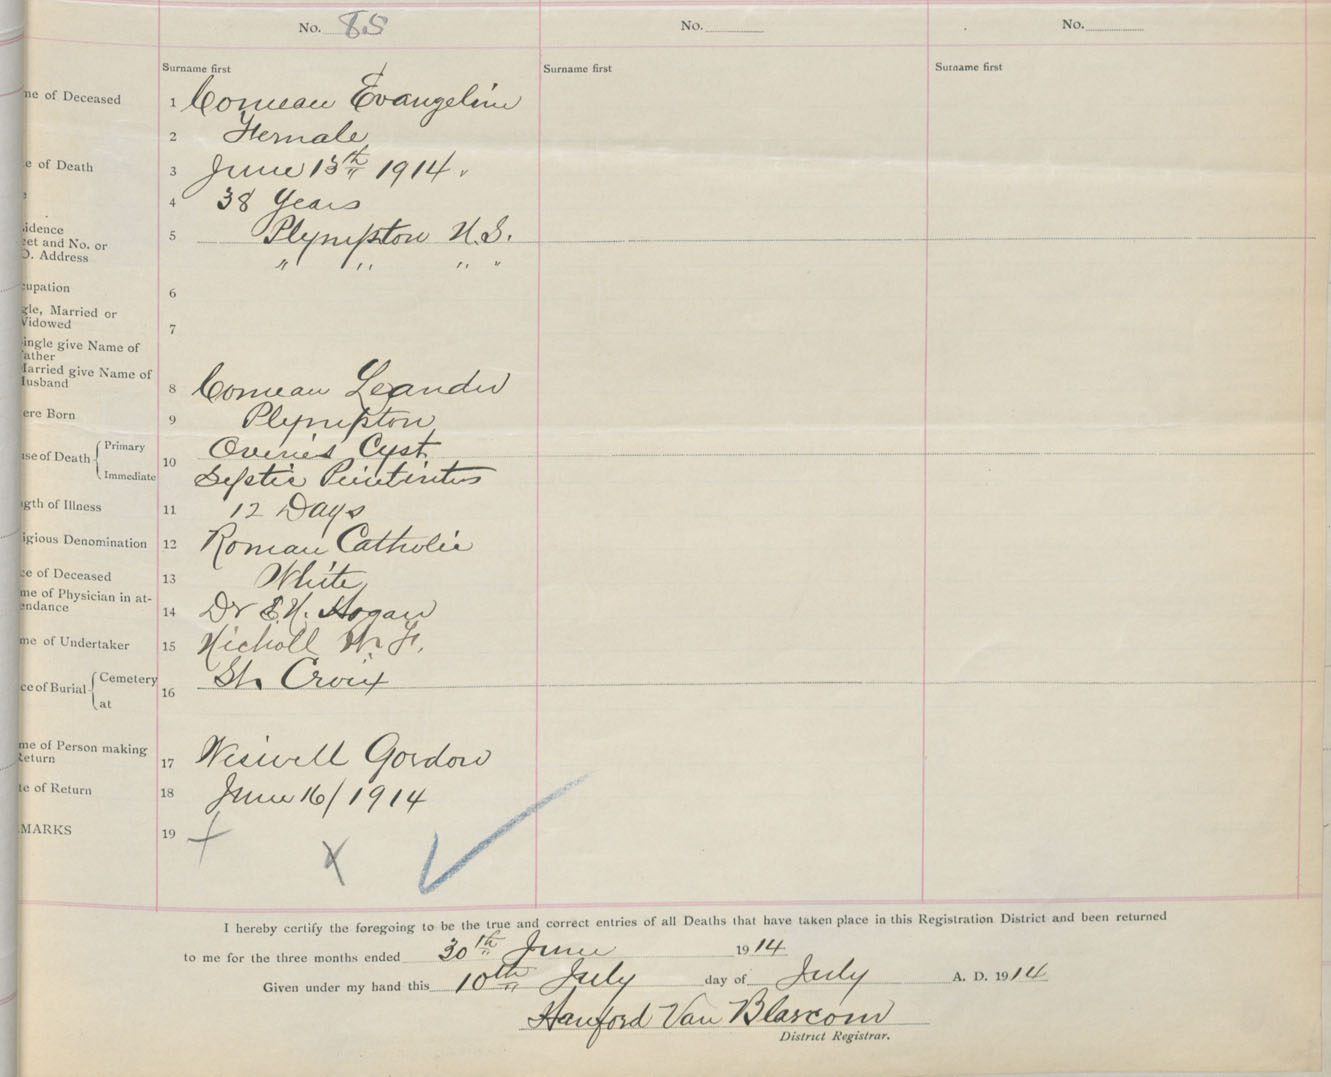 No. 85
No.
No.
Surname first
Surname first
Surname first
me of Deceased 1 Comeau Evangeline
2 Female
e of Death 3 June 13th 1914.
4 38 Years
idence
eet and No. or 5 Plympton N.S.
O. Address " " " "
cupation 6
gle, Married or
Vidowed 7
ingle give Name of
ather
Married give Name of
Husband 8 Comeau Leander
ere Born 9 Plympton
use of Death Primary 10 Overies Cyst
Immediate Septic
ngth of Illness 11 12 Days
igious Denomination 12 Roman Catholic
ce of Deceased 13 White
me of Physician in at-
endance 14 Dr E.H. Hogan
me of Undertaker 15 Nicholl W F.
ce of Burial Cemetery 16 St. Croix
at
me of Person making
Return 17 Weswell Gordon
te of Return 18 June 16/1914
MARKS 19 +
x
I hereby certify the foregoing to be the true and correct entries of all Deaths that have taken place in this Registration District and been returned
to me for the three months ended 30th June 1914
Given under my hand this 10th July day of July A. D. 1914
Hanford Van Blarcom
District Registrar.